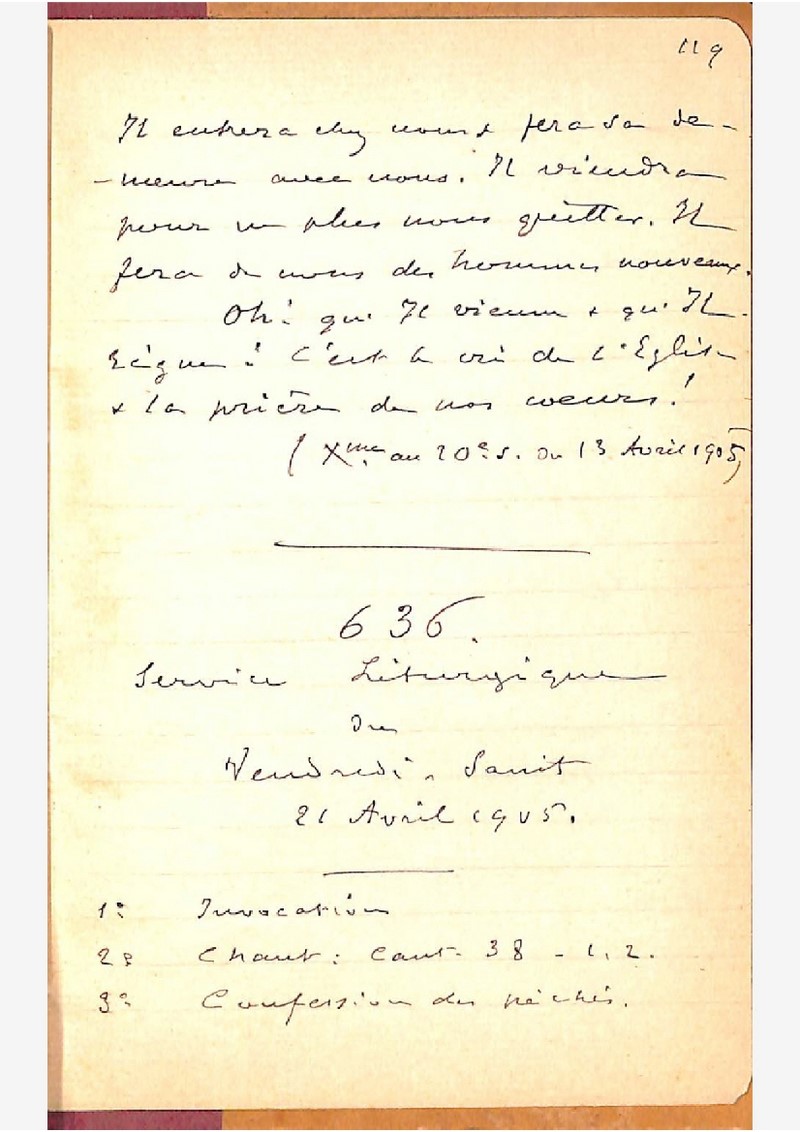 119
Il entrera chez nous & fera sa de-
-meure avec nous. Il viendra
pour ne plus nous quitter. Il
fera de nous des hommes nouveaux.
Oh! que Il vienne & qu'Il
règne! C'est le cri de l'Eglise
& la prière de nos coeurs!
(Xme au 20e s. du 13 Avril 1905)
636.
Service Liturgique
du
Vendredi-Saint
21 Avril 1905.
1° Invocation
2° Chant: Cant. 38 - 1, 2.
3° Confession des péchés.